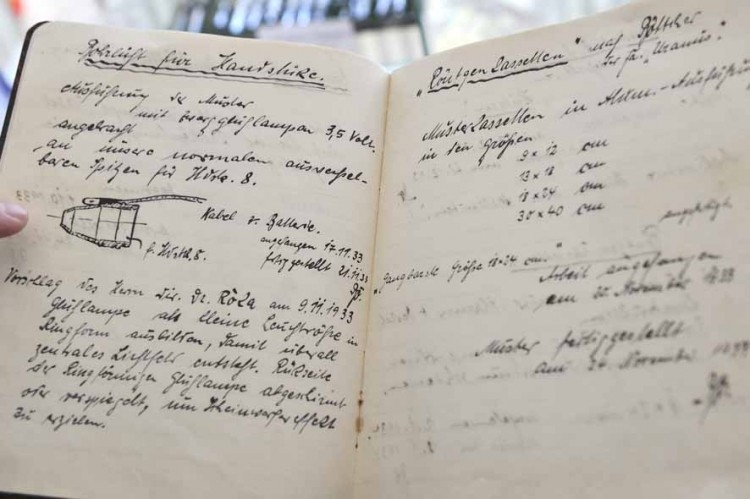 Bohrlicht für Handstücke.
Ausführung der Muster
mit Zwergglühlampen 3,5 Volt.
angebracht
an unsere normalen auswechsel-
baren Spitzen für Hdstk. 8.
Kabel z. Batterie.
angefangen 17.11.33
fertiggestellt 21.11.33
f. Hdstk. 8.
Vorschlag des Herrn Dir. Dr. Röza am 9.11.1933
Glühlampe als kleine Leuchtröhre in
Ringform ausbilden, damit überall
zentrales Lichtfeld entsteht. Rückseite
der Ringförmigen Glühlampe abgeschirmt
oder verspiegelt, um Scheinwerfereffekt
zu erzielen.
"Röntgen Cassetten" nach Böttcher
der Fa. "Uranus".
Muster Cassetten in Alum.-Ausführung
in den Größen
9 x 12 cm
13 x 18 cm
18 x 24 cm
30 x 40 cm
angefertigt
"Gangbarste Größe 18x24 cm."
Arbeit angefangen
am November 1933
Muster fertiggestellt
am 24. November 1933